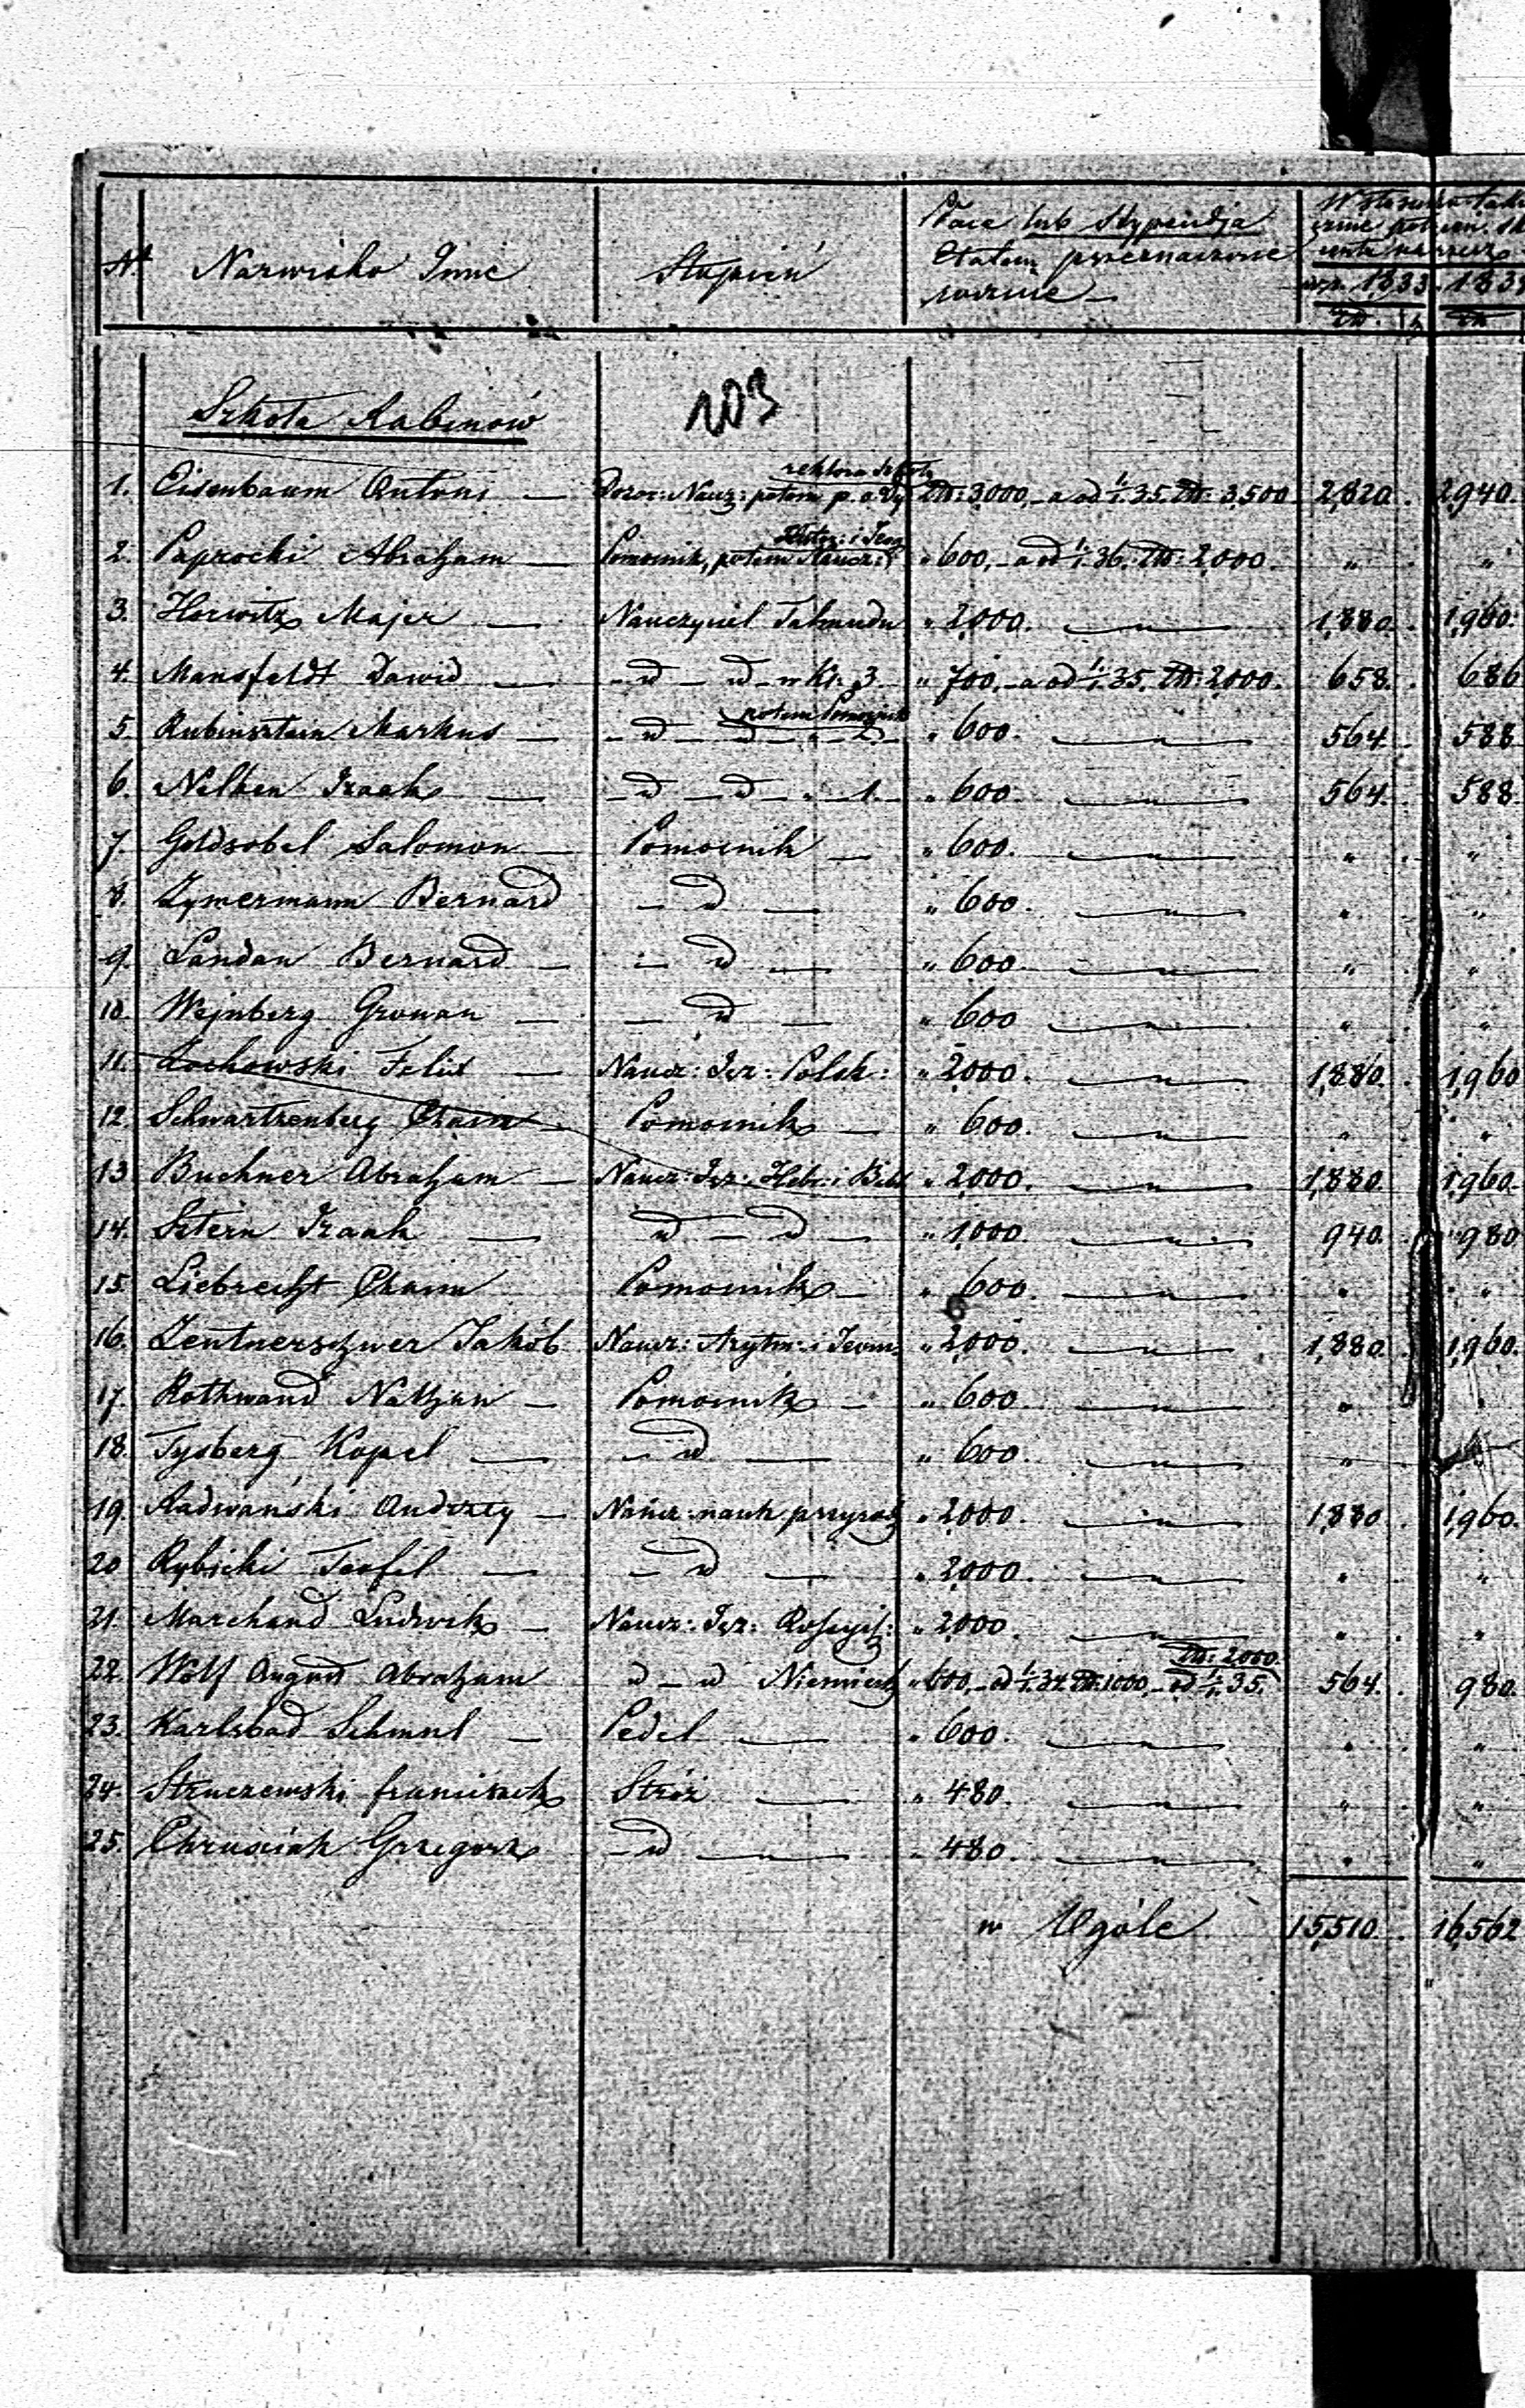 Nr Nazwisko Imie Stopień Płaca lub Stypendja Etatem przeznaczone rocznie —
w r. 1833 183
Złt. Złt
Szkoła Rabinów 103
1. Eisenbaum Antoni — Dozor: Naucz: potem p. o. rektora Szkoły Złt: 3,000, — a od 1/1. 35. Złt: 3,500 2,820. 2,940.
2. Paprocki Abraham — Pomocnik, potem Naucz: Histor: i Jeog „ 600, — a od 1/1. 36. Złt: 2,000. „ „
3. Horwitz Majer — Nauczyciel Talmudu „ 2,000. — „ — 1,880. 1,960.
4. Mansfeldt Dawid — — d — d — w Kl. 3. „ 700, — a od 1/1. 35. Złt: 2,000. 658. 686
5. Rubinsztein Markus — — d — d — „ — 2. potem Pomocnik „ 600. — „ — 564. 588
6. Nelken Izaak — — d — d — „ — 1. — „ 600. — „ — 564. 588.
7. Goldsobel Salomon — Pomocnik — „ 600. — „ — „ „
8. Zymermann Bernard — d — „ 600. — „ — „ „
9. Landau Bernard — — d — „ 600. — „ — „ „
10. Wejnberg Gronan — — d — „ 600 — „ — „ „
11. Żochowski Felix — Naucz: Jęz: Polsk: „ 2,000. — „ — 1,880. 1,960
12. Schwartzenberg Chaim — Pomocnik — „ 600. — „ — „ „
13. Buchner Abraham — Naucz: Jęz: Hebr: i Bibl „ 2,000. — „ — 1,880. 1,960.
14. Sztern Izaak — d — d — „ 1,000. — „ — 940. 980
15. Liebrecht Chaim Pomocnik — „ 600. — „ — „ „
16. Zentnerschwer Jakób Naucz: Arytm: i Jeom: „ 2,000. — „ — 1,880. 1,960.
17. Rothwand Nathan — Pomocnik — „ 600. — „ — „
18. Tysberg Kopel — — d — „ 600. — „ — „
19. Radwański Andrzey — Naucz: nauk przyrodz „ 2,000. — „ — 1,880. 1,960.
20 Rybicki Teofil — — d — „ 2,000. — „ — „ „
21. Marchand Ludwik — Naucz: Jęz: Rossyjs: „ 2,000. — „ — „ „
22. Wolf August Abraham d — d Niemieck „ 600, — od 1/1. 34. Złt: 1000, — od 1/1. 35. Złt: 2000. 564. 980.
23. Karlsbad Schmul — Pedel — „ 600. — „ — „ „
24. Struczewski franciszek Stróż — „ 480. — „ — „ „
25. Chruściak Grzegorz — d — „ — „ 480. — „ — „ „
w Ogóle 15,510. 16,562